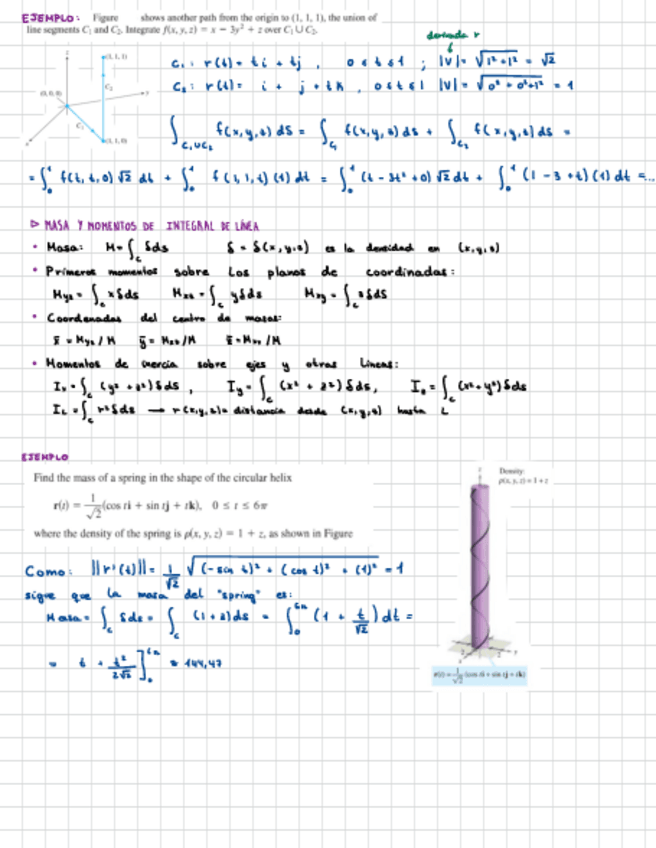 EJEMPLO: Figure shows another path from the origin to (1, 1, 1), the union of
line segments C₁ and C₂. Integrate f(x, y, z) = x − 3y² + z over C₁ ∪ C₂.
derivada r
(1, 1, 1)
(0, 0, 0)
C₂
C₁
(1, 1, 0)
C₁: r(t) = ti + tj , 0 ≤ t ≤ 1 ; |v| = √(1² + 1²) = √2
C₂: r(t) = i + j + tk , 0 ≤ t ≤ 1 |v| = √(0² + 0² + 1²) = 1
∫_{C₁∪C₂} f(x,y,z) ds = ∫_{C₁} f(x,y,z) ds + ∫_{C₂} f(x,y,z) ds =
= ∫₀¹ f(t, t, 0) √2 dt + ∫₀¹ f(1, 1, t) (1) dt = ∫₀¹ (t − 3t² + 0) √2 dt + ∫₀¹ (1 − 3 + t) (1) dt = ...
▷ MASA Y MOMENTOS DE INTEGRAL DE LÍNEA
• Masa: M = ∫_c δ ds δ = δ(x, y, z) es la densidad en (x, y, z)
• Primeros momentos sobre los planos de coordinadas:
Myz = ∫_c x δ ds Mxz = ∫_c y δ ds Mxy = ∫_c z δ ds
• Coordenadas del centro de masas:
x̄ = Myz / M ȳ = Mxz / M z̄ = Mxy / M
• Momentos de inercia sobre ejes y otras líneas:
Iₓ = ∫_c (y² + z²) δ ds , I_y = ∫_c (x² + z²) δ ds, I_z = ∫_c (x² + y²) δ ds
I_L = ∫_c r² δ ds → r(x, y, z) = distancia desde (x, y, z) hasta L
EJEMPLO
Find the mass of a spring in the shape of the circular helix
r(t) = 1/√2 (cos ti + sin tj + tk), 0 ≤ t ≤ 6π
where the density of the spring is ρ(x, y, z) = 1 + z, as shown in Figure
Density:
ρ(x, y, z) = 1 + z
r(t) = 1/√2 (cos ti + sin tj + tk)
Como: ||r'(t)|| = 1/√2 √((−sin t)² + (cos t)² + (1)²) = 1
sigue que la masa del "spring" es:
Masa = ∫_c δ ds = ∫_c (1 + z) ds = ∫₀^{6π} (1 + t/√2) dt =
= t + t²/2√2 ]₀^{6π} ≈ 144,47